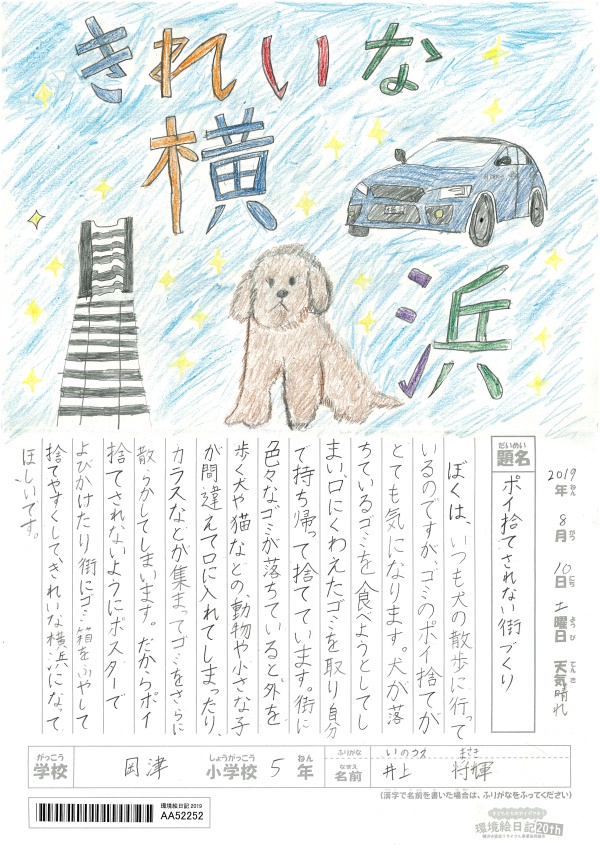 きれいな
横
浜
2019年ねん 8月がつ 10日にち 土曜日ようび 天気てんき 晴れ
だいめい
題名
ポイ捨てされない街づくり
ぼくは、いつも犬の散歩に行って
いるのですが、ゴミのポイ捨てが
とても気になります。犬が落
ちているゴミを食べようとしてし
まい、口にくわえたゴミを取り自分
で持ち帰って捨てています。街に
色々なゴミが落ちていると外を
歩く犬や猫などの、動物や小さな子
が間違えて口に入れてしまったり、
カラスなどが集まってゴミをさらに
散らかしてしまいます。だからポイ
捨てされないようにポスターで
よびかけたり街にゴミ箱をふやして
捨てやすくしてきれいな横浜になって
ほしいです。
がっこう
学校
岡津
しょうがっこう
小学校
5
ねん
年
ふりがな
いのうえ まさき
なまえ
名前
井上 将輝
(漢字で名前を書いた場合は、ふりがなをふってください)
環境絵日記2019
AA52252
環境絵日記20th